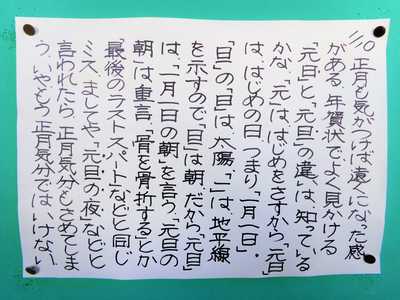 1/10 正月も気がつけば遠くになった感
がある。年賀状でよく見かける
「元日」と「元旦」の違い、知っている
かな。「元」は、はじめをさすから、「元日」
は、はじめの日、つまり、「一月一日」。
「旦」の「日」は、太陽、「一」は、地平線
を示すので、「旦」は、朝、だから、「元旦」
は、「一月一日の朝」を言う。「元旦の
朝」は重言、「骨を骨折する」とか
「最後のラストスパート」などと同じ
ミス。ましてや、「元旦の夜」などと
言われたら、正月気分もさめてしま
う。いやもう正月気分ではいけない。